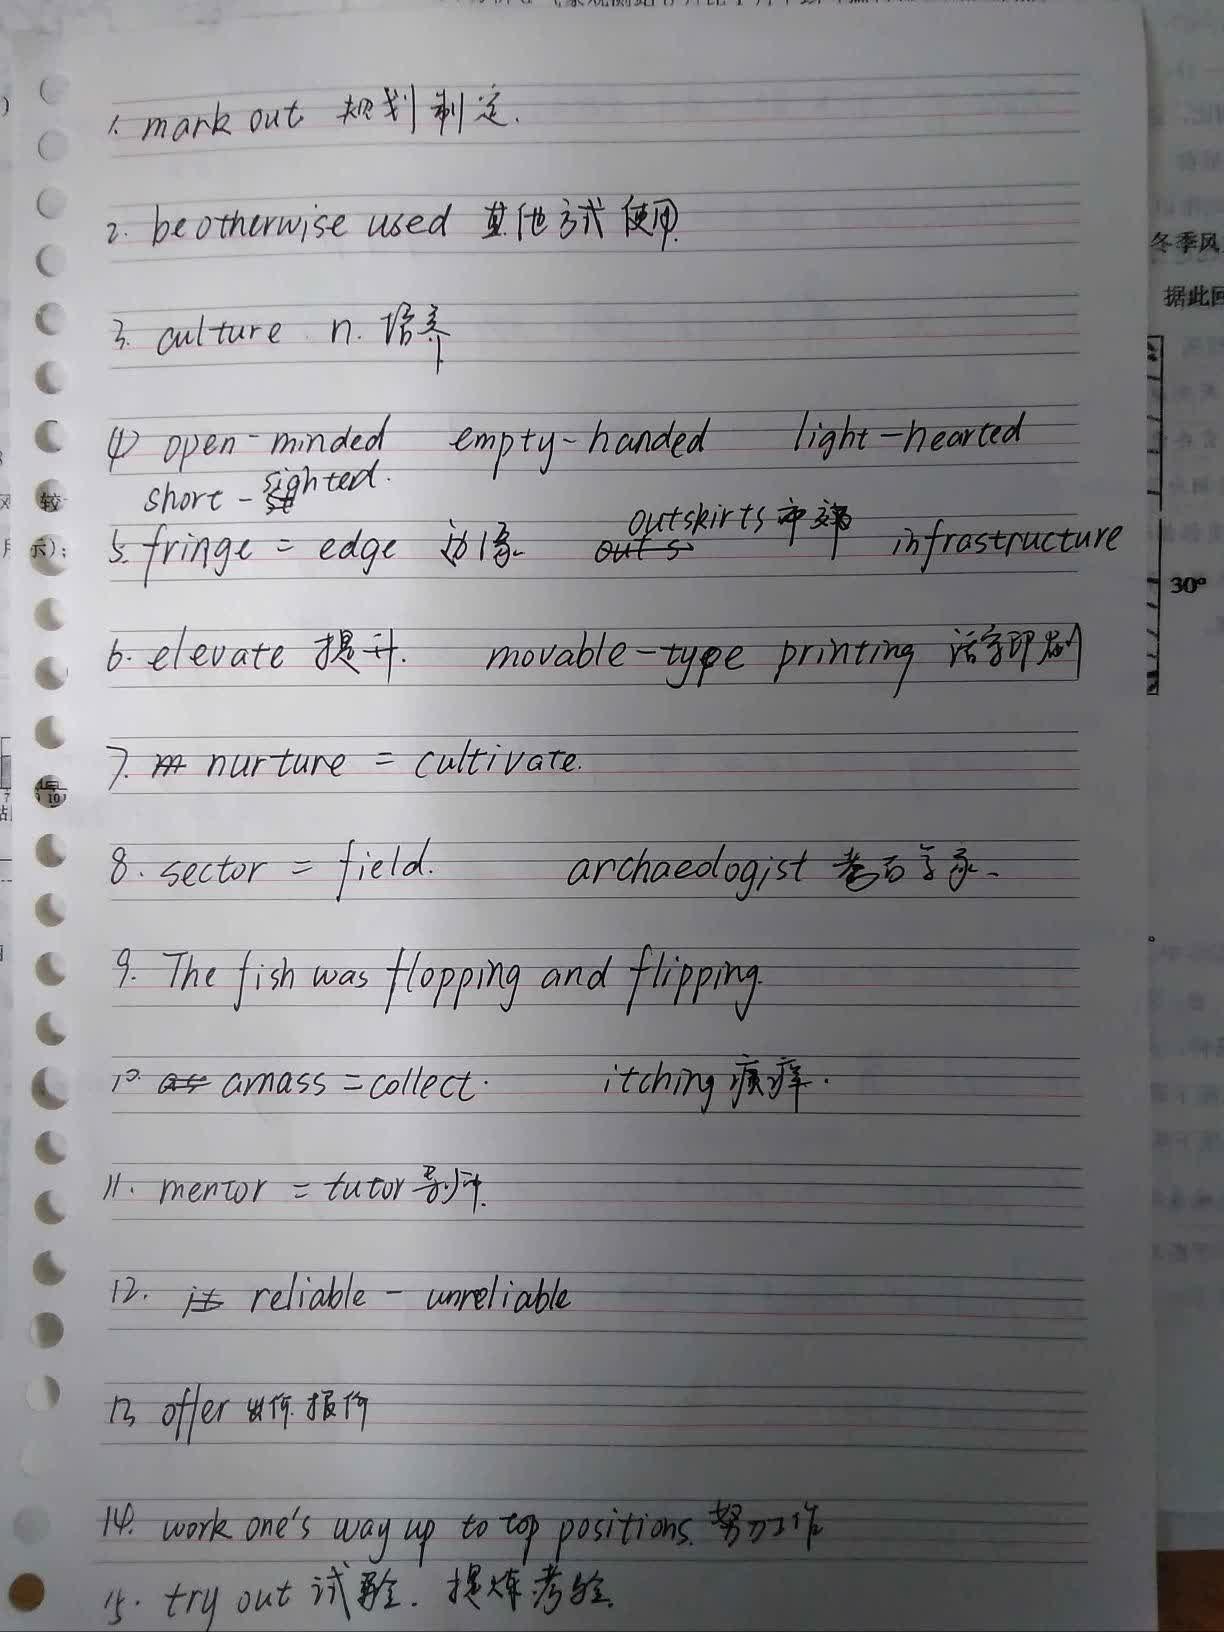 1. mark out. 规划 制定.
2. be otherwise used 其他方式使用.
3. culture n. 培养
4) open-minded empty-handed light-hearted
short-sighted.
5. fringe = edge 边缘 outskirts 市郊 infrastructure
6. elevate 提升. movable-type printing 活字印刷
7. nurture = cultivate.
8. sector = field. archaeologist 考古学家
9. The fish was flopping and flipping.
10. amass = collect. itching 瘙痒.
11. mentor = tutor 导师.
12. reliable - unreliable
13 offer 出价. 报价
14. work one's way up to top positions. 努力工作
15. try out 试验. 提炼考验.
冬季风
据此回
30°
较
示):